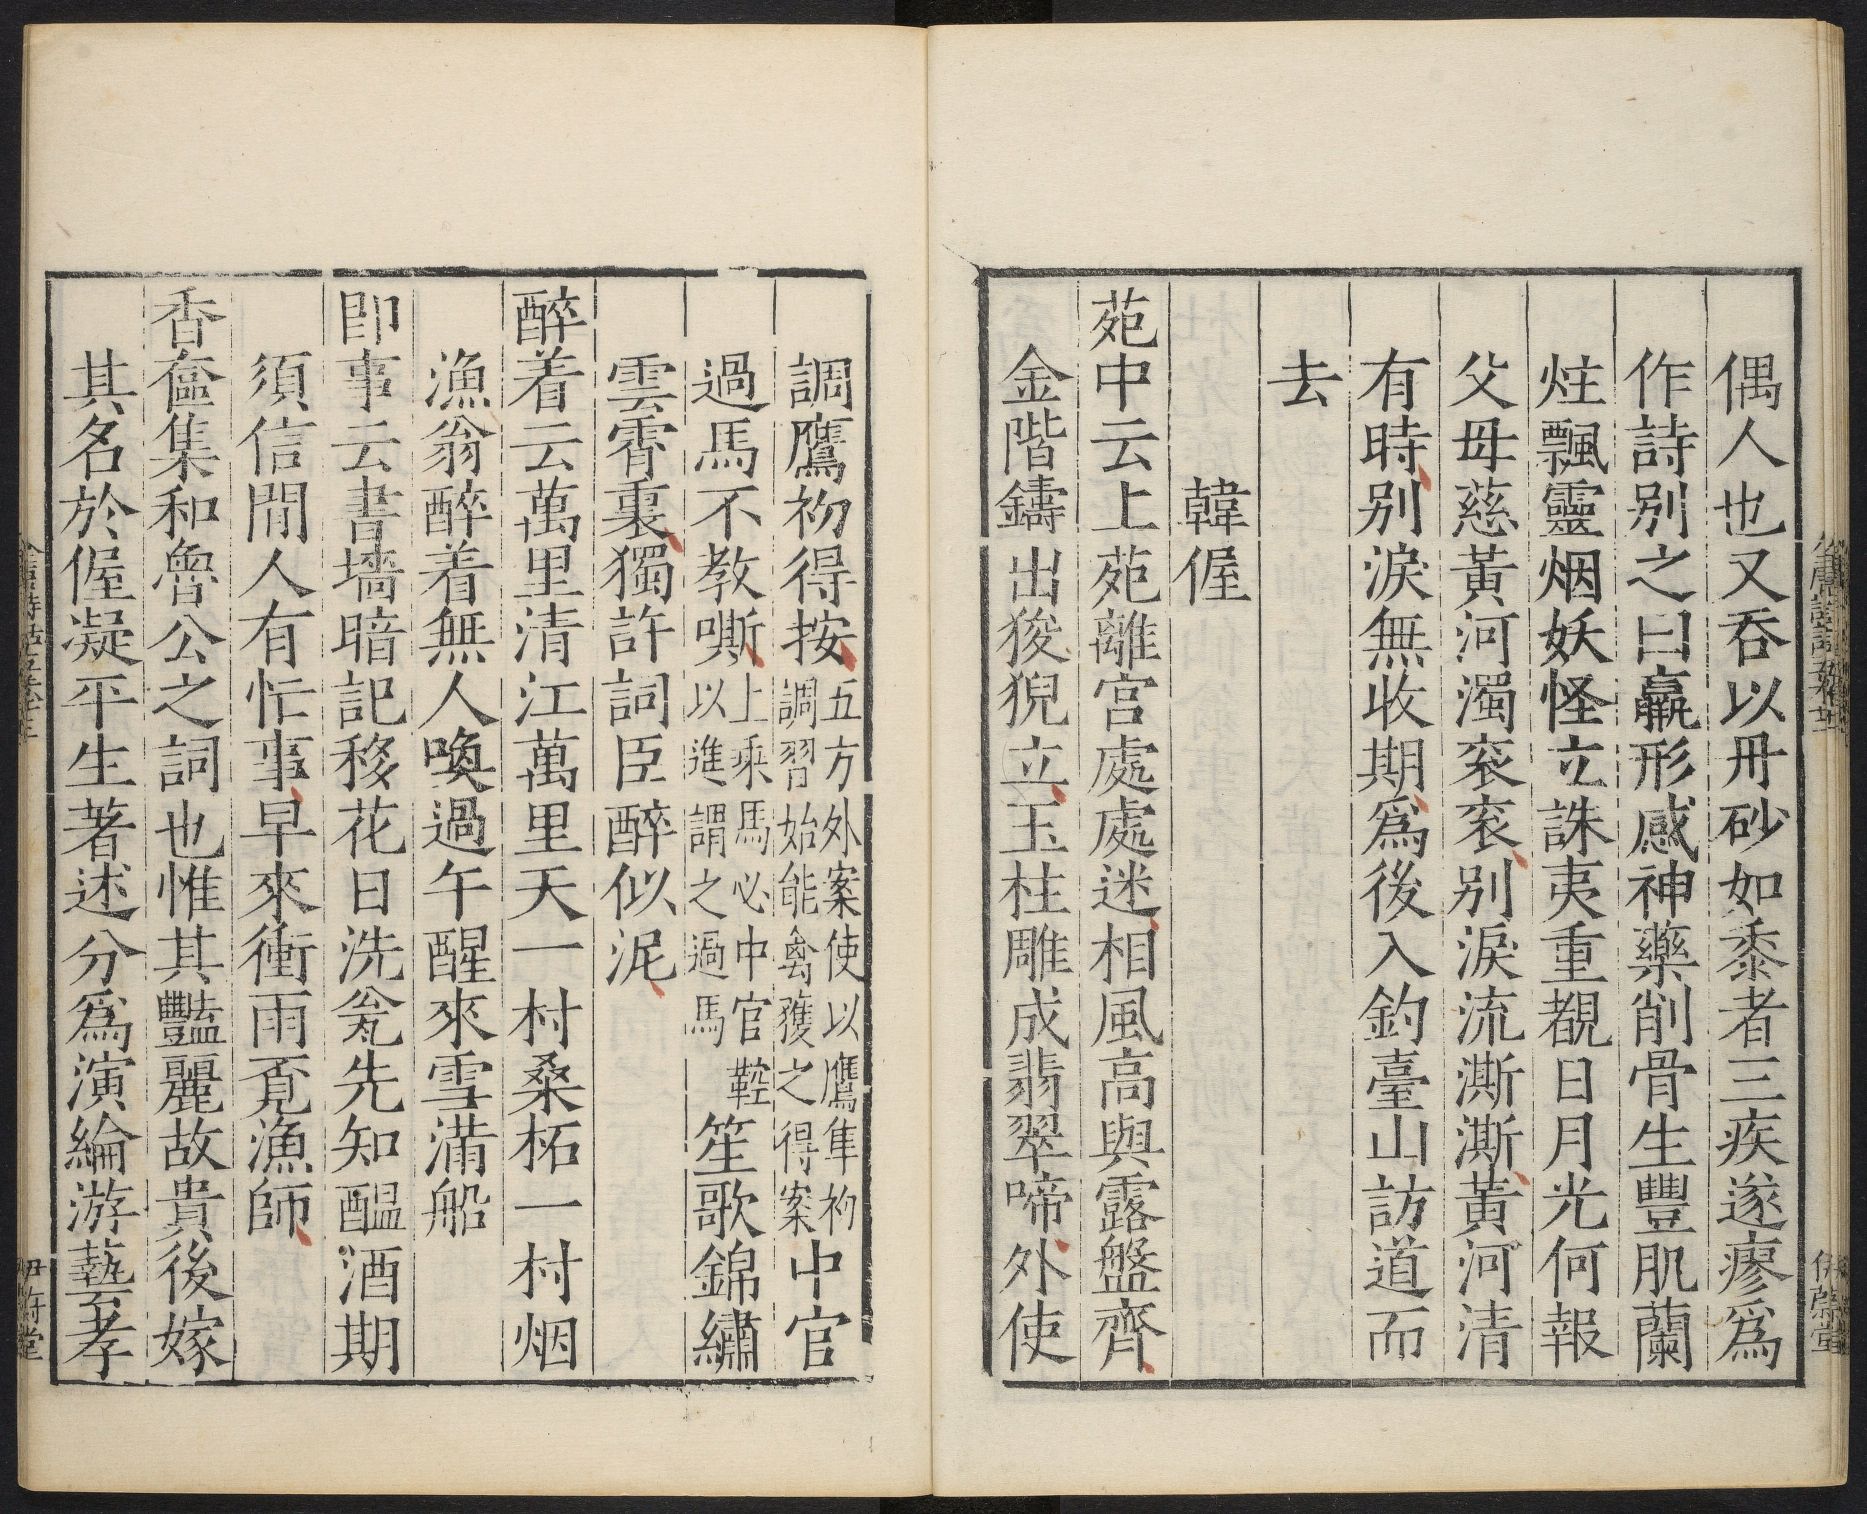 偶人也又吞以丹砂如黍者三疾遂瘳爲
作詩别之曰羸形感神藥削骨生豐肌蘭
炷飄靈烟妖怪立誅夷重覩日月光何報
父母慈黃河濁衮衮别淚流澌澌黃河清
有時别淚無收期爲後入釣臺山訪道而
去
韓偓
苑中云上苑離宮處處迷相風高與露盤齊
金階鑄出狻猊立玉柱雕成翡翠啼外使
調鷹初得按五方外案使以鷹隼初調習始能禽獲之得案中官
過馬不教嘶上乘馬必中官鞚以進謂之過馬笙歌錦繡
雲霄裏獨許詞臣醉似泥
醉着云萬里清江萬里天一村桑柘一村烟
漁翁醉着無人喚過午醒來雪滿船
即事云書墻暗記移花日洗瓮先知醖酒期
須信閒人有忙事早來衝雨覔漁師
香奩集和魯公之詞也惟其豔麗故貴後嫁
其名於偓凝平生著述分爲演綸游藝孝